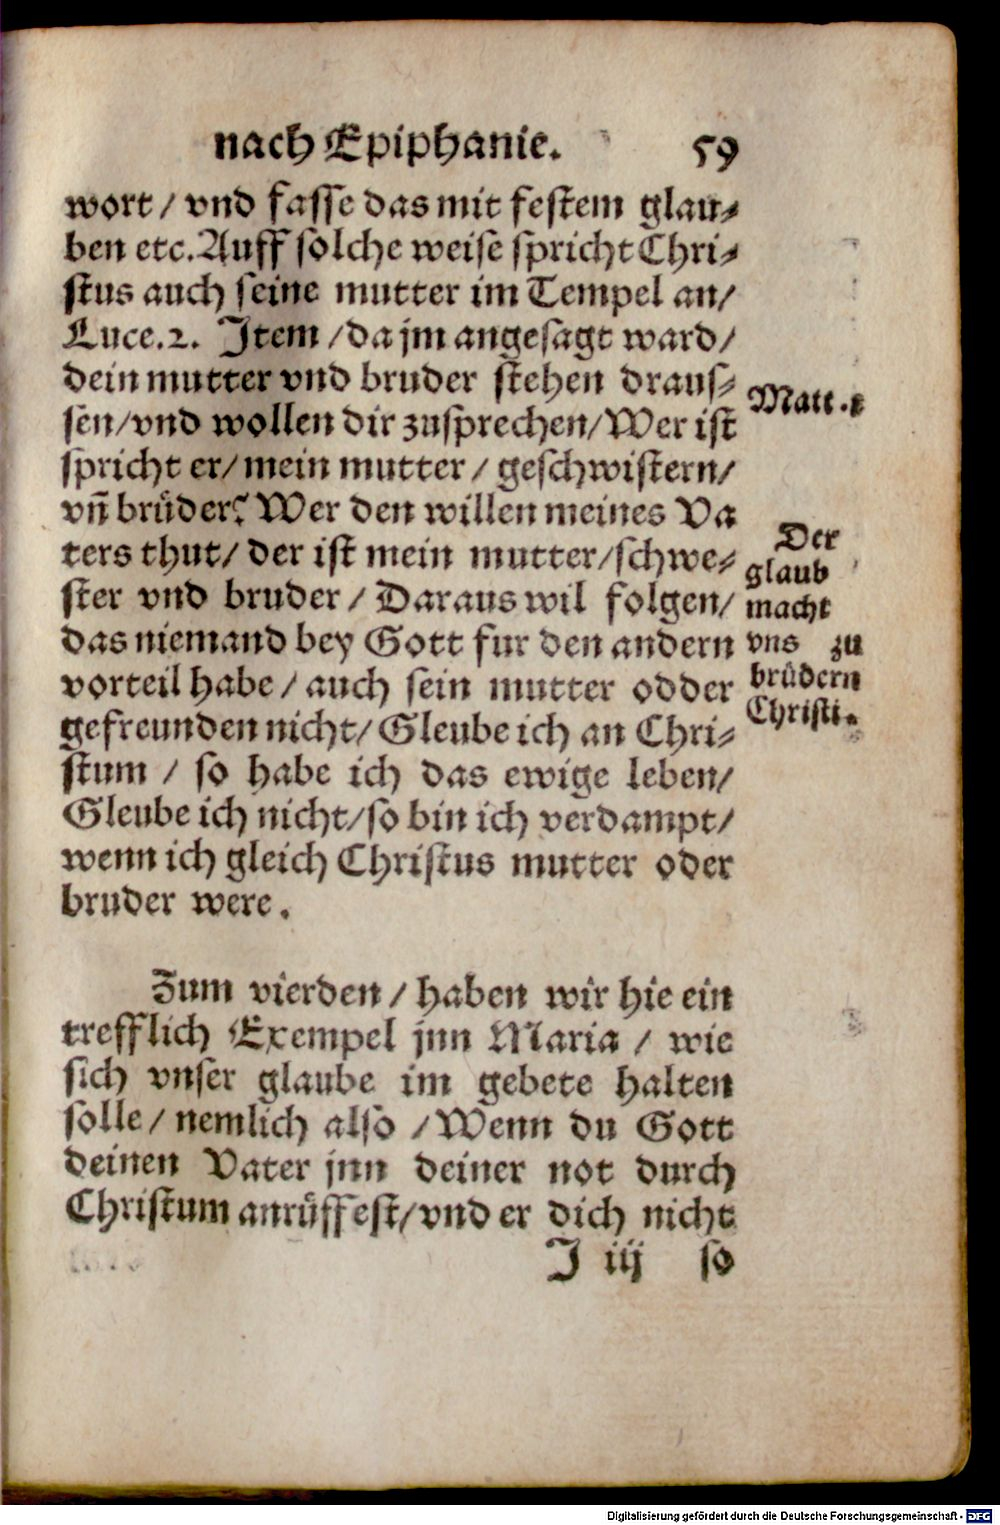 nach Epiphanie. 59
wort / vnd fasse das mit festem glau⸗
ben etc. Auff solche weise spricht Chri⸗
stus auch seine mutter im Tempel an/
Luce.2. Item /da jm angesagt ward/
dein mutter vnd bruder stehen draus⸗
sen/vnd wollen dir zusprechen/Wer ist
spricht er/ mein mutter / geschwistern/
vñ bruͤder? Wer den willen meines Va
ters thut/ der ist mein mutter/schwe⸗
ster vnd bruder / Daraus wil folgen/
das niemand bey Gott fur den andern
vorteil habe / auch sein mutter odder
gefreunden nicht/ Gleube ich an Chri⸗
stum / so habe ich das ewige leben/
Gleube ich nicht/so bin ich verdampt/
wenn ich gleich Christus mutter oder
bruder were.
Matt.
Der
glaub
macht
vns zu
bruͤdern
Christi.
Zum vierden / haben wir hie ein
trefflich Exempel jnn Maria / wie
sich vnser glaube im gebete halten
solle / nemlich also /Wenn du Gott
deinen Vater jnn deiner not durch
Christum anruͤffest/vnd er dich nicht
J iij so
Digitalisierung gefördert durch die Deutsche Forschungsgemeinschaft - DFG